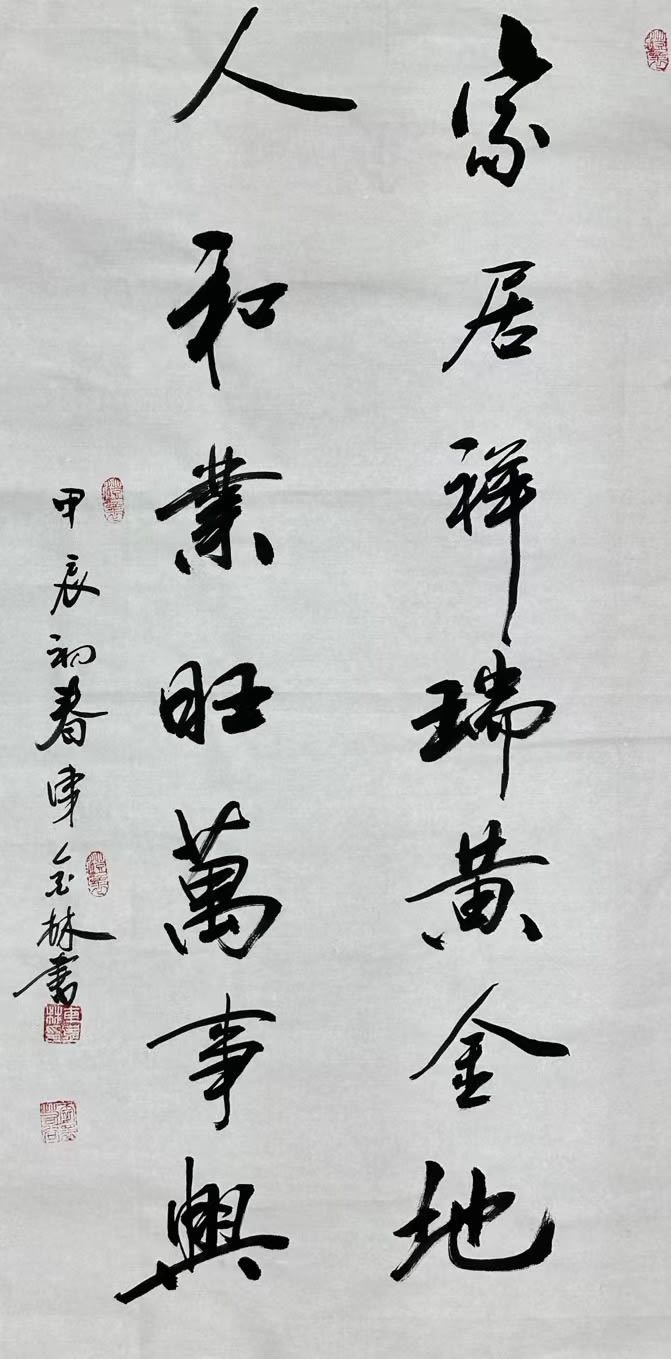 家居祥瑞黄金地
人和業旺萬事興
甲辰初春車金林書